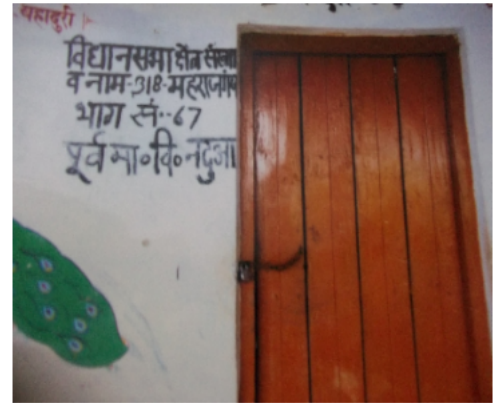 बहादुरी
विधानसभा क्षेत्र संख्या
व नाम-318-महराजगंज
भाग सं.-67
पूर्व मा॰वि॰नदुआ